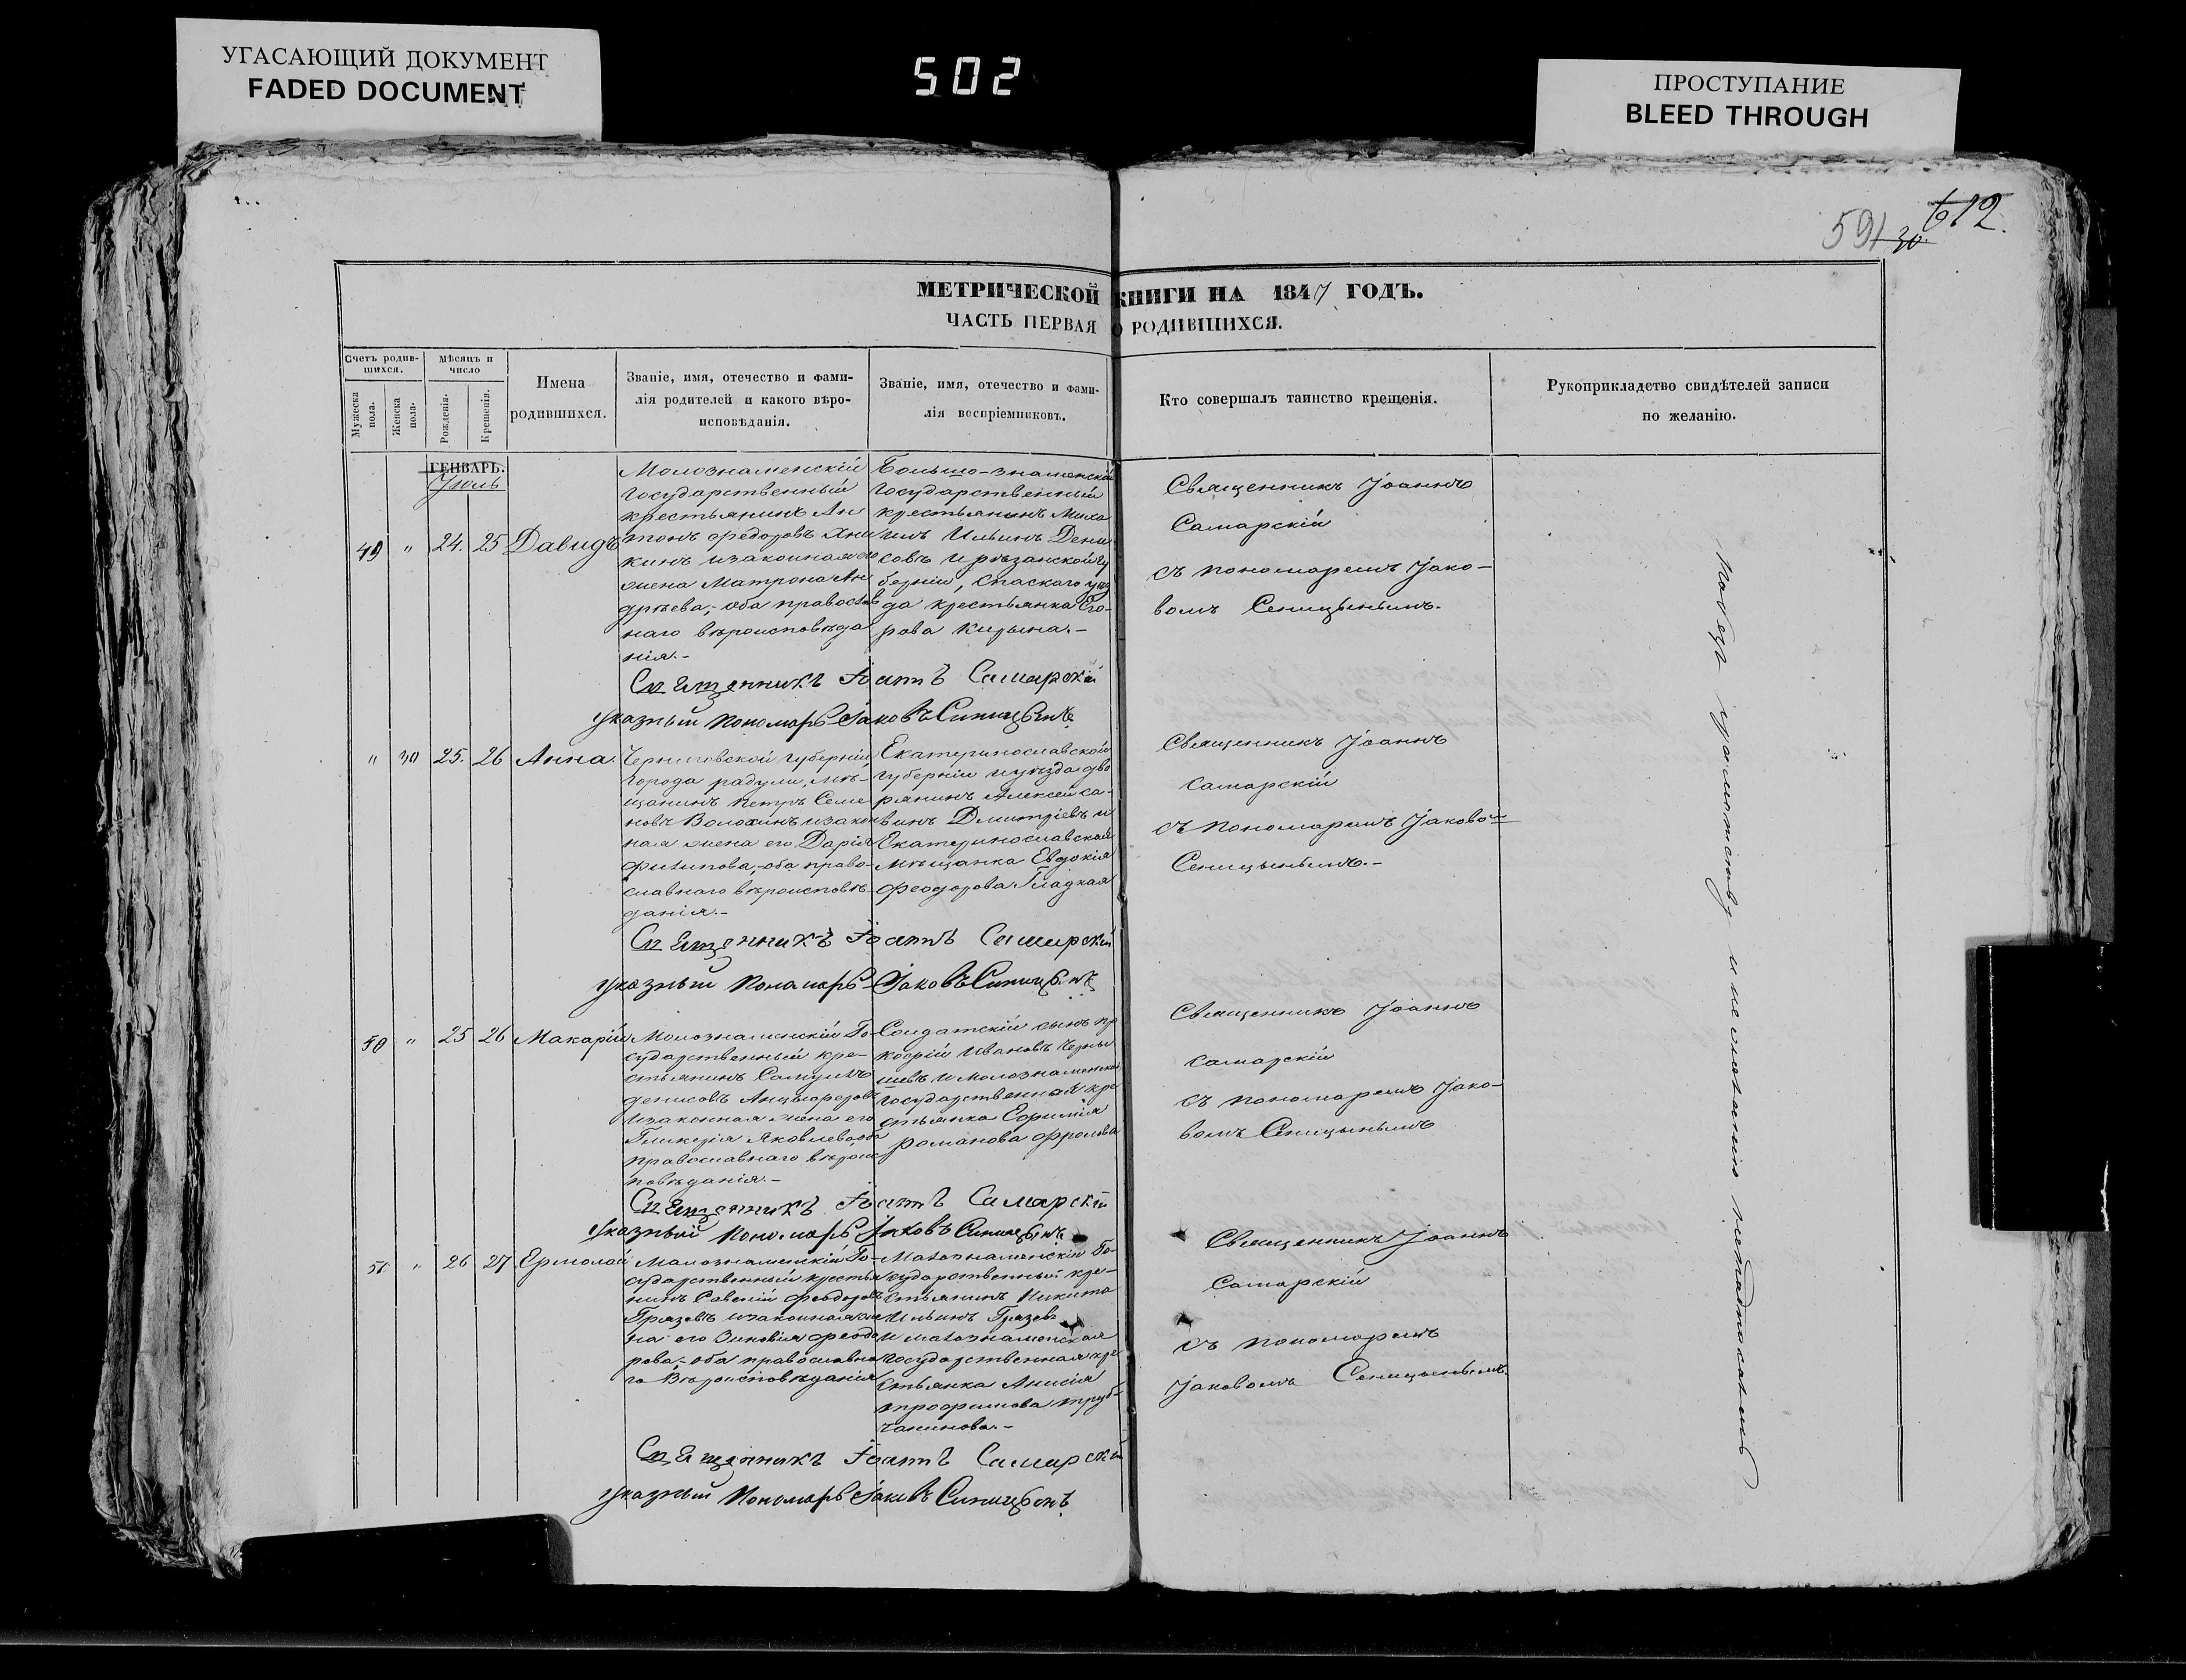 УГАСАЮЩИЙ ДОКУМЕНТ
FADED DOCUMENT
502
ПРОСТУПАНИЕ
BLEED THROUGH
612.
591
30.
МЕТРИЧЕСКОЙ КНИГИ НА 1847 ГОДЪ.
ЧАСТЬ ПЕРВАЯ О РОДИВШИХСЯ.
Счетъ родив-
шихся.
Мужеска
пола.
Женска
пола.
Мѣсяцъ и
число
Рожденія.
Крещенія.
Имена
родившихся.
Званіе, имя, отечество и фами-
лія родителей и какого вѣро-
исповѣданія.
Званіе, имя, отечество и фами-
лія воспріемниковъ.
Кто совершалъ таинство крещенія.
Рукоприкладство свидѣтелей записи
по желанію.
ГЕНВАРЬ.
Іюль
49 " 24. 25 Давидъ
Малознаменскій
Государственный
крестьянинъ Ан
тонъ Федоровъ
кинъ изаконная его
жена Матрона Ан
дрѣева,- оба православ
наго вѣроисповѣда
нія.-
Больше-знаменскій
Государственный
крестьянинъ Миха
илъ Ильинъ Дени
совъ и рѣзанской гу
берніи, Спаскаго уѣз
да крестьянка Его-
рова
Священникъ Іоаннъ
Самарскій
съ пономаремъ Іако-
вомъ Сеницынымъ.
Священникъ Іоаннъ Самарскій
указный Пономарь Іаковъ Синицынъ
" 30 25. 26 Анна.
Черниговской губерніи
города радули, мѣ-
щанинъ петръ Семе
новъ Волохинъ изакон
ная жена его Дарія
Филипова,-оба право-
славнаго вѣроисповѣ-
данія.-
Екатеринославской
губерніи иуѣзда дво
рянинъ Алексей са-
винъ Дмитріевъ и
Екатеринославская
мѣщанка Евдокія
Феодорова Гладкая
Священникъ Іоаннъ
Самарскій
съ пономаремъ Іаково
Сеницынымъ.-
Священникъ Іоаннъ Самарскій
указный Пономарь Іаковъ Синицынъ
50 " 25 26 Макарій
Малознаменскій Го-
сударственный кре-
стьянинъ Самуилъ
денисовъ
изаконная жена его
Гликерія Яковлева,оба
православнаго вѣроис
повѣданія.-
Солдатскій сынъ пр
кофій Ивановъ Черны
шевъ и Малознаменская
государственная кре
стьянка Ефимія
романова Фролова
Священникъ Іоаннъ
Самарскій
съ пономаремъ Іако-
вомъ Сеницынымъ
Священникъ Іоаннъ Самарскій
указный Пономарь Іаковъ Синицынъ
51 " 26 27 Ермолай
Малознаменскій Го-
сударственный крестья
нинъ Савелій Феодоровъ
Грязевъ изаконная же
на его Зиновія Феодо
рова,-оба православна
го Вѣроисповѣданія
Малознаменскій Го-
сударственный кре-
стьянинъ Никита
Ильинъ Грязевъ
и малознаменская
государственная кре
стьянка Анисія
трофимова труб-
чанинова.-
Священникъ Іоаннъ
Самарскій
съ пономаремъ
Іаковомъ Сеницынымъ.
Священникъ Іоаннъ Самарскій
указный Пономарь Іаковъ Синицынъ